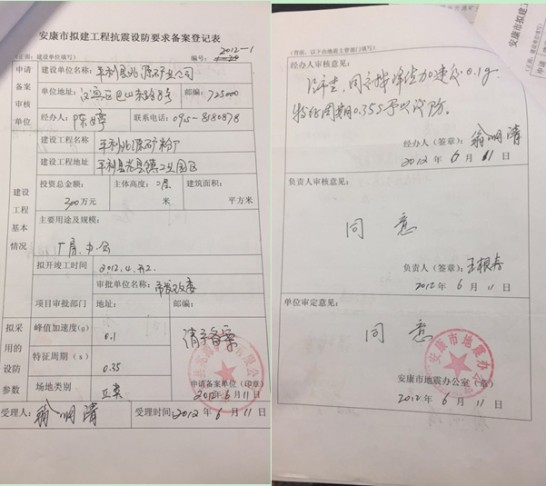 安康市拟建工程抗震设防要求备案登记表
2012-1
编号:
申请备案审核单位
建设单位名称:平利县兆源矿业公司
单位地址:汉滨区巴山东路8号 邮编:725000
经办人:陈 联系电话:0915-8180878
建设工程基本情况
建设工程名称 平利兆源矿粉厂
建设工程地址 平利县老县镇工业园区
投资总金额: 主体高度:二层 建筑面积:
300万元 米 平方米
主要用途及规模:
厂房、办公
拟开竣工时间 2012.4
项目审批部门
审批单位名称:市发改委
地址: 邮编:
拟采用的设防参数
峰值加速度(g) 0.1
特征周期(s) 0.35
场地类别 II类
请予备案
申请备案单位(印章)
2012年6月11日
受理人:翁明清 受理时间:2012年6月11日
经办人审核意见:
同意按峰值加速度0.1g
特征周期0.35S予以设防。
经办人(签章):翁明清
2012年6月11日
负责人审核意见:
同意
负责人(签章):王根寿
2012年6月11日
单位审定意见:
同意
安康市地震办公室
安康市地震办公室(章)
2012年6月11日